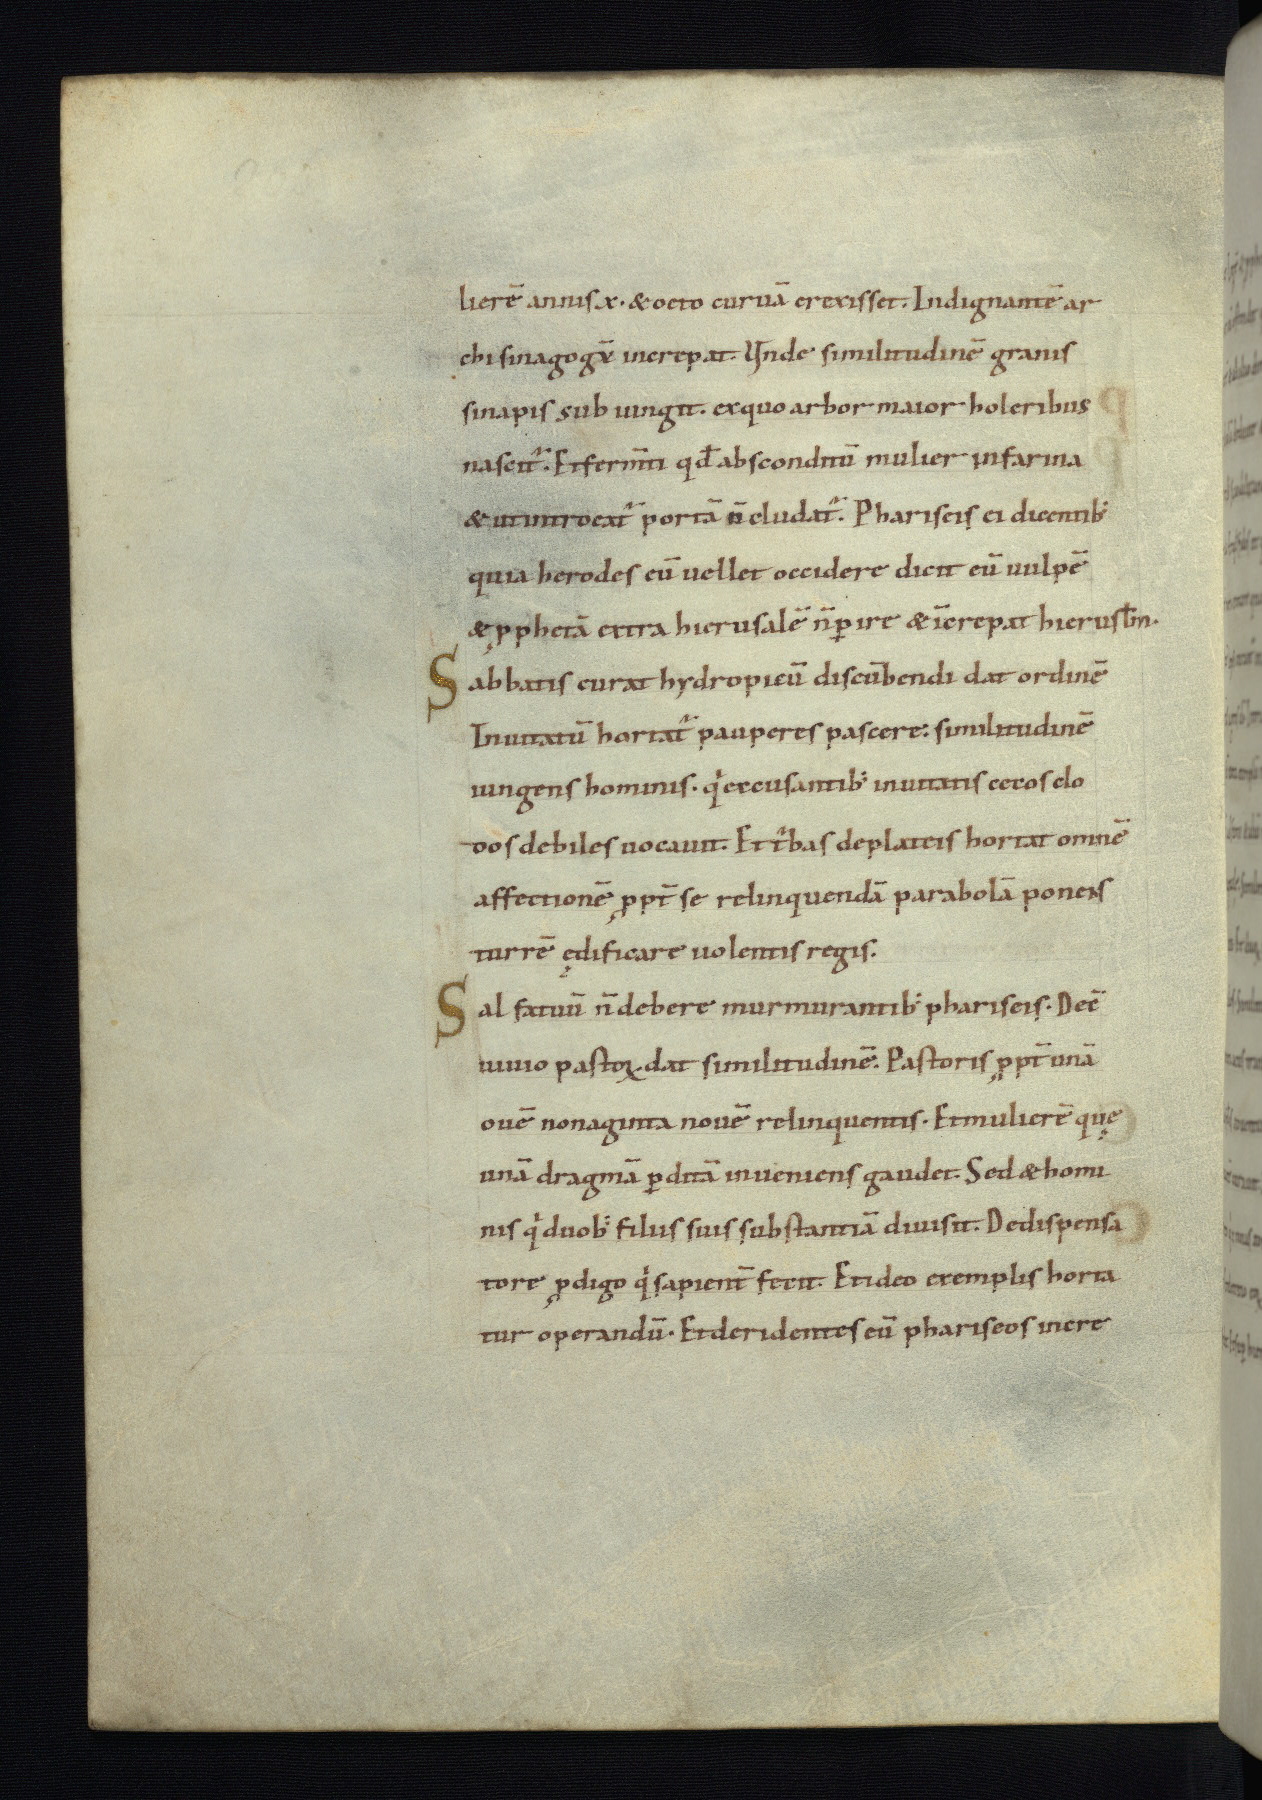 lierē annis x· & octo curuā erexisset. Indignantē ar
chisinagogū increpat. Unde similitudinē granis
sinapis sub iungit. ex quo arbor maior holeribus
nascit᷑. Et fermti qđ absconditū mulier in farina
& ut introeat᷑ portā n̄ cludat᷑. Phariseis ei dicentib;
quia herodes eū uellet occidere dicit eū uulpē
& ꝓphetā extra hierusalē n̄ ꝑire & īcrepat hierusłm.
Sabbatis curat hydropicū discūbendi dat ordinē
Inuitatū hortat᷑ pauperes pascere: similitudinē
iungens hominis· qͥ excusantib; inuitatis cecos clo
dos debiles uocauit. Et tͥbas de plateis hortat omnē
affectionē ꝓpt̄ se relinquendā parabolā ponens
turrē ędificare uolentis regis.
Sal fatuū n̄ debere murmurantib; phariseis. Dec̄
imo pastoꝝ dat similitudinē. Pastoris ꝓpt̄ unā
ouē nonaginta nouē relinquentis. Et mulierē quę
unā dragmā ꝑditā inueniens gaudet. Sed & homi
nis qͥ duob; filiis suis substantiā diuisit. De dispensa
tore ꝓdigo qͥ sapient̄ fecit. Et ideo exemplis horta
tur operandū. Et deridentes eū phariseos incre